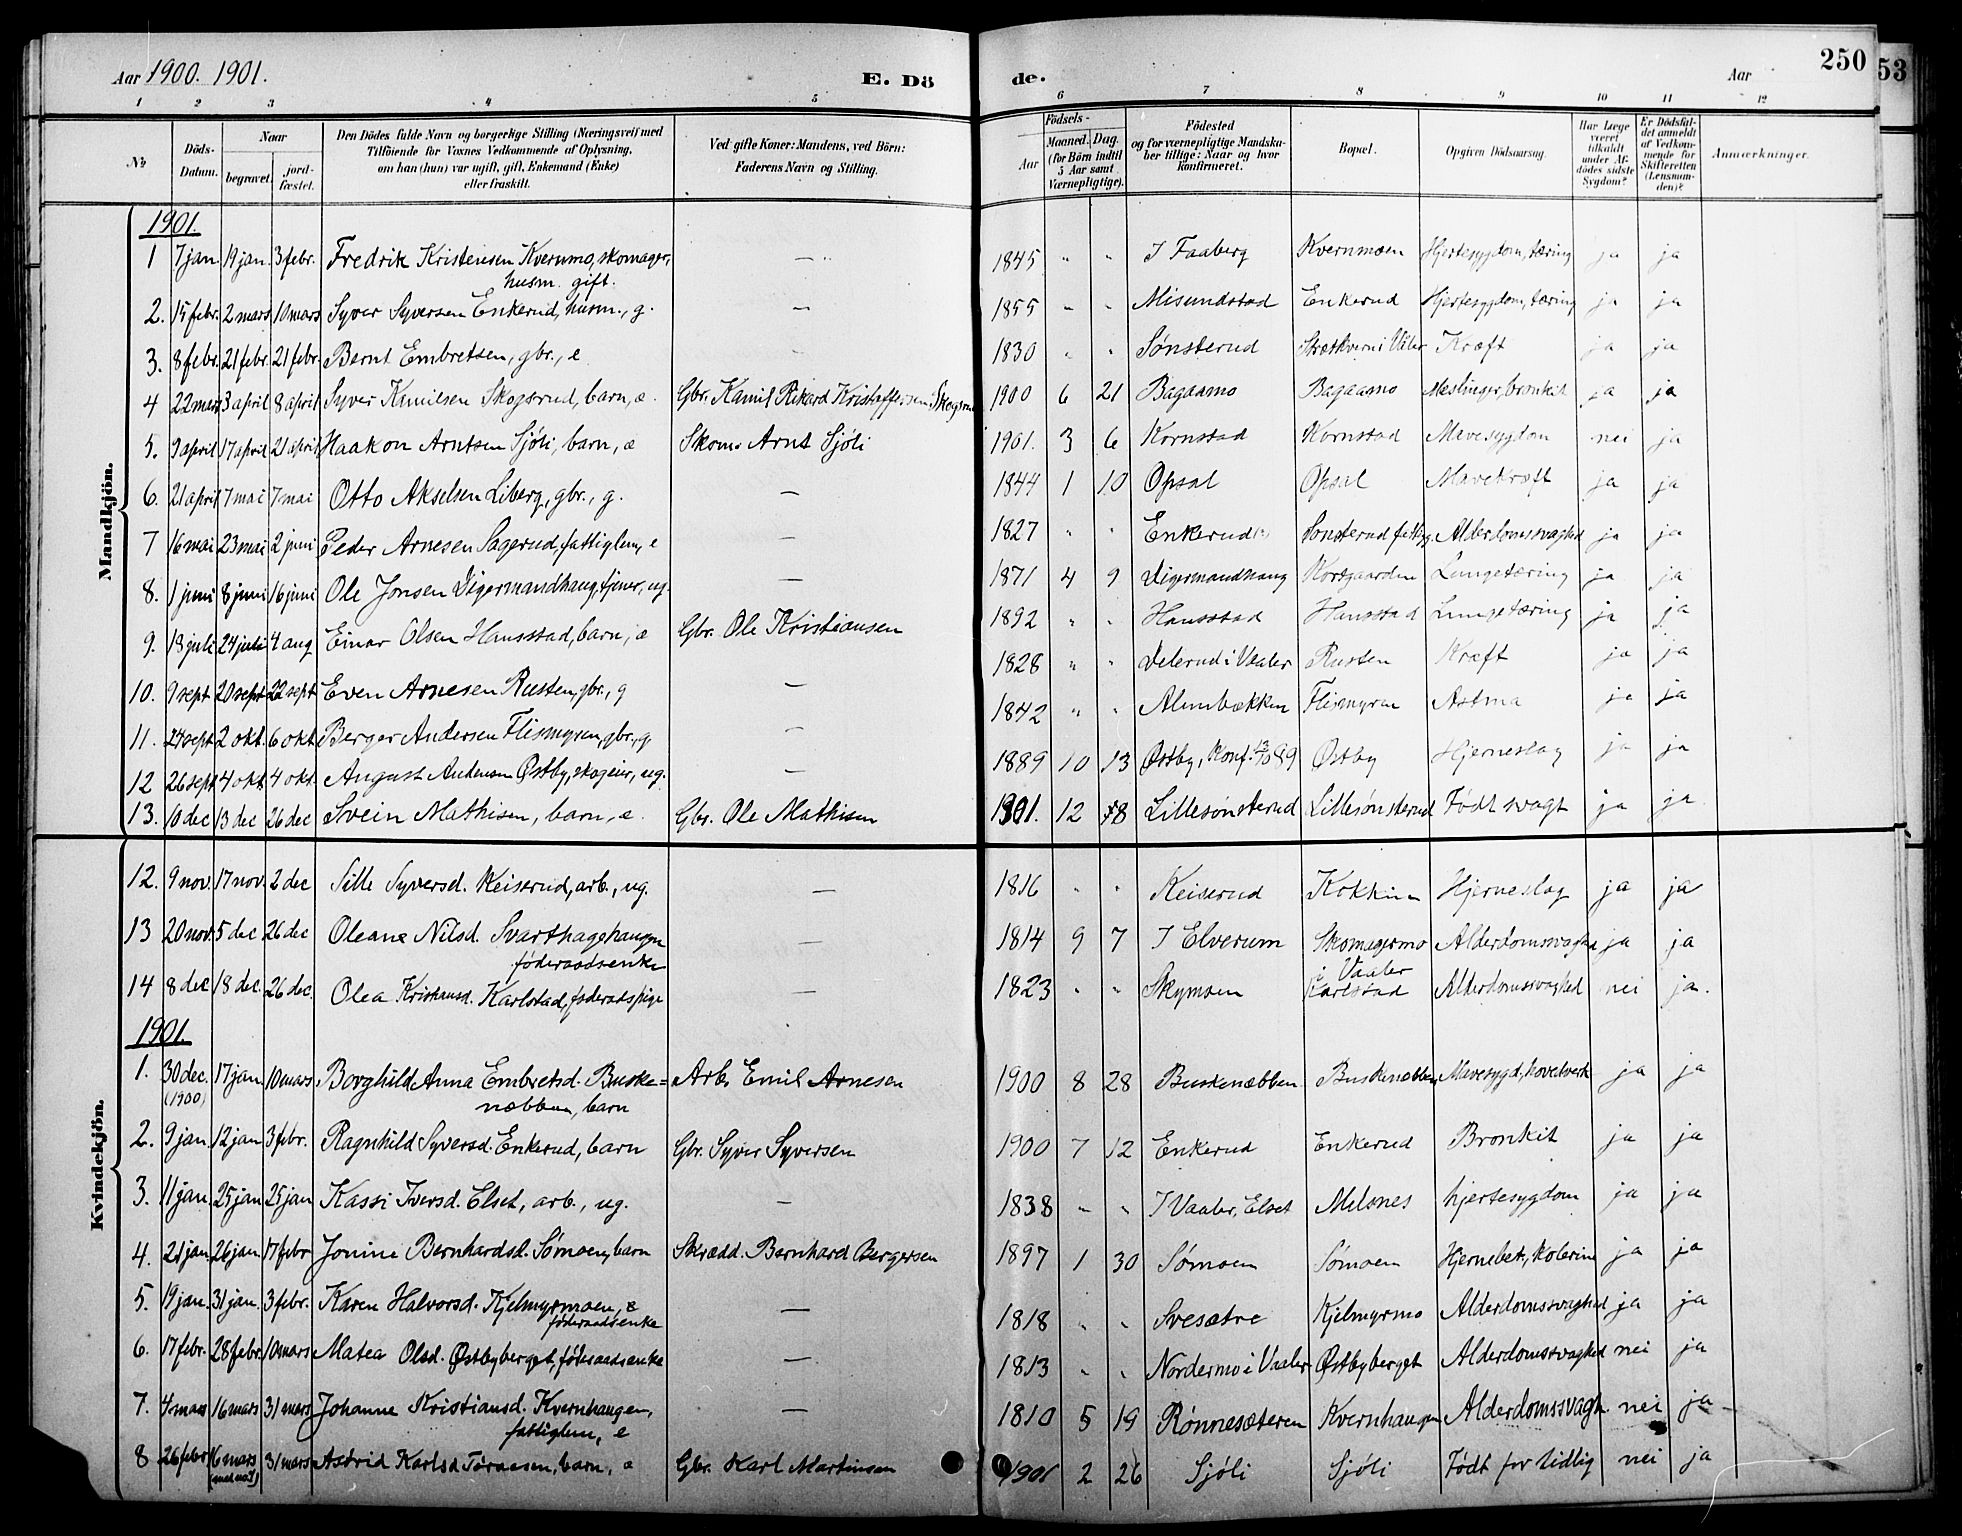 Aar 1900. 1901. E. Dö
de. Aar 250 53
1 2 3 4 5 6 7 8 9 10 11 12
No
Döds-Datum.
Naar
begravet.
jord-fæstet.
Den Dödes fulde Navn og borgerlige Stilling (Næringsvei) med
Tilföiende for Voxnes Vedkommende af Oplysning,
om han (hun) var ugift, gift, Enkemand (Enke)
eller fraskilt.
Ved gifte Koner: Mandens, ved Börn:
Faderens Navn og Stilling.
Födsels-
Aar
Maaned. Dag.
(for Börn indtil
5 Aar samt
Værnepligtige).
Födested
og for værnepligtige Mandsku-
ber tillige: Naar og hvor
konfirmeret.
Bopæl.
Opgiven Dödsaarsag.
Har Læge
været
tilkaldt
under Af-
dödes sidste
Sygdom?
Er Dödsfal-
det anmeldt
af Vedkom-
mende for
Skifteretten
(Lensman-
den)?
Anmærkninger.
Mandkjön.
1901.
1 7 jan. 19 jan. 3 febr. Fredrik Kristensen Kvernmo, skomager, — 1845 " " I Faaberg Kvernmoen Hjertesygdom, tæring ja ja
husm. gift.
2. 15 febr. 2 mars 10 mars Syver Syversen Enkerud, husm., g. — 1855 " " Misundstad Enkerud Hjertesygdom, tæring ja ja
3. 8 febr. 21 febr. 21 febr. Bernt Embretsen, gbr., e — 1830 " " Sønsterud i Vaaler Kræft ja ja
4 22 mars 3 april 8 april Syver Kamilsen Skogsrud, barn, æ. Gbr. Kamil Rikard Kristoffersen Skogsrud 1900 6 21 Bagaasmo Bagaasmo Meslinger, bronkit ja ja
5. 9 april 17 april 21 april Haakon Arntsen Sjøli, barn, æ Skom. Arnt Sjøli 1901. 3 6 Kornstad Kornstad Mavesygdom nei ja
6. 21 april 7 mai 7 mai Otto Akselsen Liberg, gbr., g. — 1844 1 10 Opsal Opsal Mavekræft ja ja
7 16 mai 23 mai 2 juni Peder Arnesen Sagerud, fattiglem, e — 1827 " " Enkerud Sønsterud fatbyg. Alderdomssvaghed ja ja
8. 1 juni 8 juni 16 juni Ole Jonsen Digermandhaug, tjener, ug. — 1871 4 9 Digermandhaug Kordgaarden Lungetæring ja ja
9. 18 juli 24 juli 4 aug Einar Olsen Hansstad, barn, æ Gbr. Ole Kristiansen 1892 " " Hansstad Hansstad Lungetæring ja ja
10. 9 sept 20 sept 22 sept Even Arnesen Rusten, gbr., g — 1828 " " Delerud i Vaaler Rusten Kræft ja ja
11. 24 sept 2 okt. 6 okt Berger Andersen Flismyren, gbr., g — 1842 " " Almbækken Flismyren Astma ja ja
12 26 sept 4 okt. 4 okt. August Andersen Østby, skogeier, ug. — 1889 10 13 Østby, Konf. Østby Hjerneslag ja ja
13. 10 dec 13 dec 26 dec Svein Mathisen, barn, e. Gbr. Ole Mathisen 1901. 12 8 Lillesønsterud Lillesønsterud Født svagt ja ja
Kvindekjön.
12. 9 nov. 17 nov. 2 dec Sille Syversd. Keiserud, arb., ug. — 1816 " " Keiserud Kokkin Hjerneslag ja ja
13 20 nov. 5 dec 26 dec Oleane Nilsd. Svarthagehaugen — 1814 9 7 I Elverum Skomagermo Alderdomssvaghed ja ja
føderaadsenke i Vaaler
14 8 dec 18 dec. 26 dec. Olea Kristiansd. Karlstad, føderaadspige — 1823 " " Skymoen Karlstad Alderdomssvaghed nei ja.
1901.
1. 30 dec. 17 jan. 10 mars Borghild Anna Embretsd. Buske= Arb. Emil Arnesen 1900 8 28 Buskenæbben Buskenæbben Mavesygd., hovelverk ja ja
(1900) næbben, barn
2. 9 jan. 12 jan 3 febr. Ragnhild Syversd. Enkerud, barn Gbr. Syver Syversen 1900 7 12 Enkerud Enkerud Bronkit ja ja
3. 11 jan. 25 jan 25 jan Kassi Iversd. Elset, arb., ug. — 1838 " " I Vaaler, Elset Melsnes hjertesygdom ja ja
4. 21 jan. 26 jan. 17 febr Jonine Bernhardsd. Sømoen, barn Skrædd. Bernhard Bergersen 1897 1 30 Sømoen Sømoen Hjernebet., kolerine ja ja
5. 19 jan. 31 jan. 3 febr. Karen Halvorsd. Kjelmyrmoen, e — 1818 " " Svesætre Kjelmyrmo Alderdomssvaghed ja ja
føderaadsenke
6. 17 febr. 28 febr. 10 mars Matea Olsd. Østbyberget, føderaadsenke — 1813 " " Nordermo i Vaaler Østbyberget Alderdomssvaghed nei ja
7. 4 mars 16 mars 31 mars Johanne Kristiansd. Kvernhaugen, — 1810 5 19 Rønnesæteren Kvernhaugen Alderdomssvagh nei ja
fattiglem, e
8 26 febr 16 mars 31 mars Astrid Karlsd. barn, æ Gbr. Karl Martinsen 1901 2 26 Sjøli Sjøli Født for tidlig nei ja